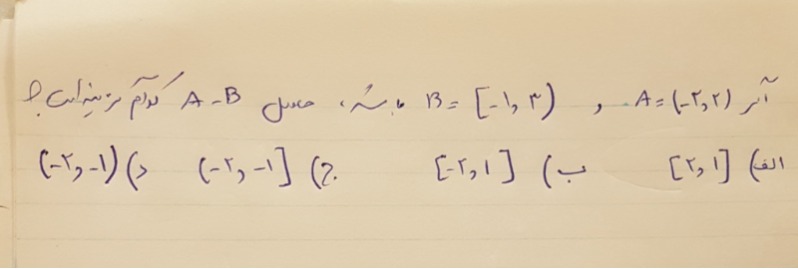 اگر A = (-۲و۲) و B = [-۱و۳) باشد، حاصل A-B کدام گزینه است؟
الف) [۲و۱] ب) [-۲و۱] ج) (-۲و-۱] د) (-۲و-۱)